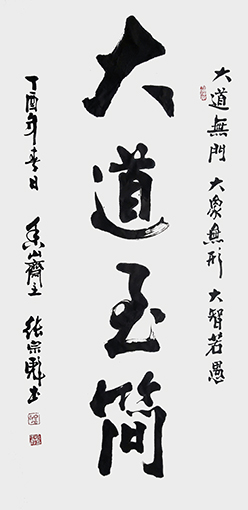 大道無門 大象無形 大智若愚
大道至簡
丁酉年春日 香山齋主 張宗彪书